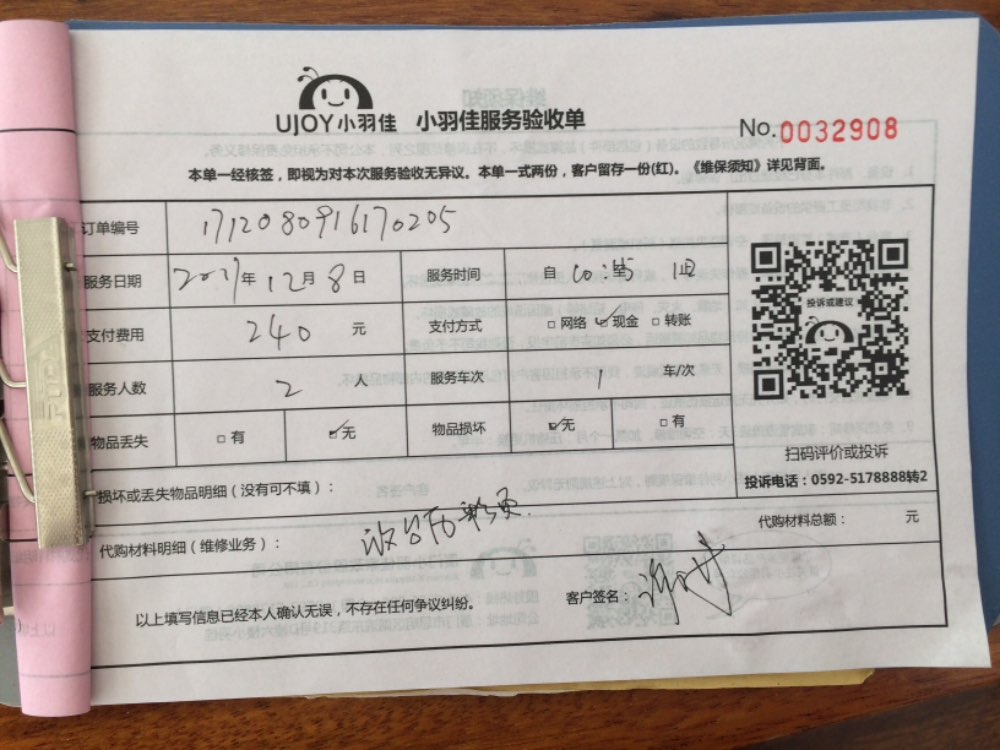 UJOY小羽佳 小羽佳服务验收单
No.0032908
本单一经核签，即视为对本次服务验收无异议。本单一式两份，客户留存一份(红)。《维保须知》详见背面。
订单编号 1712080916170205
服务日期 2017年12月8日 服务时间 自
支付费用 240 元 支付方式 □网络 ☑现金 □转账
服务人数 2 人 服务车次 1 车/次
物品丢失 □有 ☑无 物品损坏 ☑无 □有
投诉或建议
扫码评价或投诉
投诉电话：0592-5178888转2
损坏或丢失物品明细（没有可不填）：
代购材料明细（维修业务）：
代购材料总额： 元
以上填写信息已经本人确认无误，不存在任何争议纠纷。
客户签名：